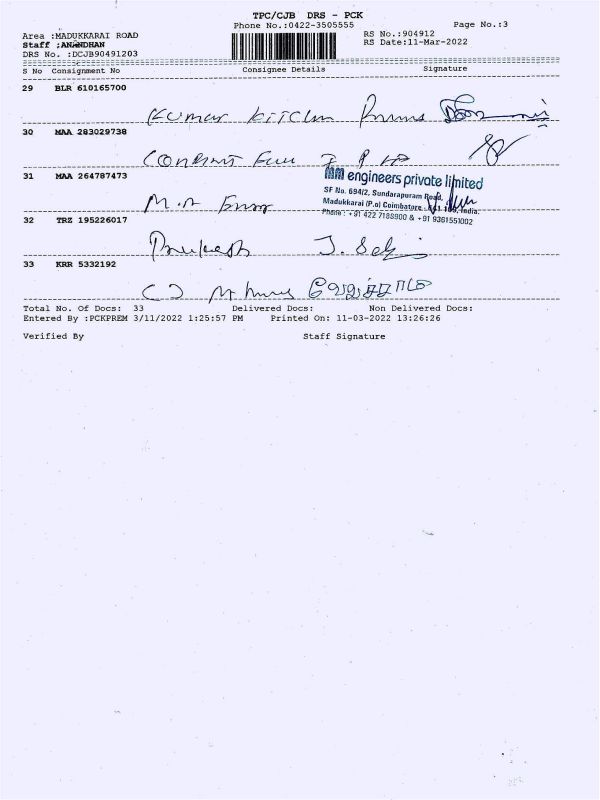 TPC/CJB DRS - PCK
Phone No.:0422-3505555
Page No.:3
Area :MADUKKARAI ROAD
RS No.:904912
Staff ;ANANDHAN
RS Date:11-Mar-2022
DRS No. :DCJB90491203
S No Consignment No Consignee Details Signature
29 BLR 610165700
Kumar Kitchen
30 MAA 283029738
31 MAA 264787473
mm engineers private limited
SF No. 694/2, Sundarapuram Road,
M.M
Madukkarai (P.o) Coimbatore India.
Phone : +91 422 7188900 & +91 9361551002
32 TRZ 195226017
Prakash
33 KRR 5332192
Total No. Of Docs: 33 Delivered Docs: Non Delivered Docs:
Entered By :PCKPREM 3/11/2022 1:25:57 PM Printed On: 11-03-2022 13:26:26
Verified By Staff Signature